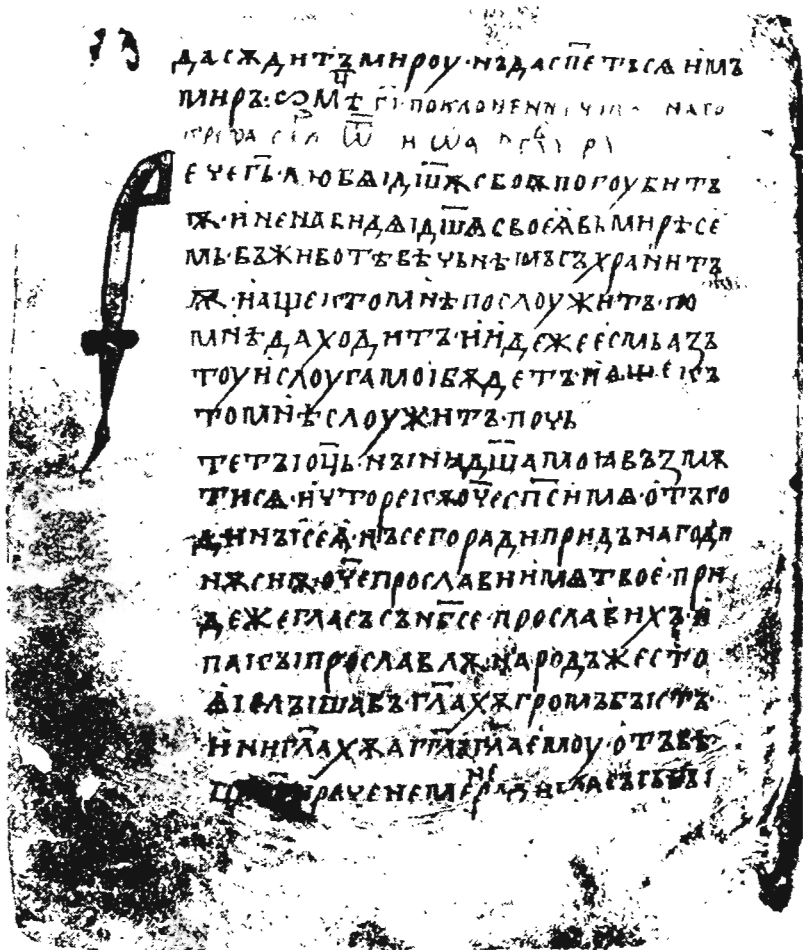 да сѫдитъ мироу · нъ да сп҃етъ сѧ имъ
миръ:
рече г҃ь · любѧі д҃шѫ своѭ погоубитъ
ѭ · и ненавидѧі д҃шѧ своеѧ вь мирѣ се
мь · въ животѣ вѣчьнѣмъ съхранитъ
ѭ · и аще кто мнѣ послоужитъ · по
мнѣ да ходитъ · и идеже есмь азъ
тоу и слоуга моі бѫдетъ · и аще къ
то мнѣ слоужитъ · почь
тетъ і оц҃ь · нъінѧ д҃ша моꙗ възмѫ
ти сѧ · и что рекѫ оч҃е сп҃си мѧ · отъ го
динъі сеѧ · нъ сего ради придъ на годи
нѫ сиѭ · оч҃е прослави имѧ твое · при
де же гласъ съ нб҃се · прославихъ · и
пакъі прославлѭ · народъ же сто
ѧі слъішавъ · гл҃ахѫ громъ бъістъ
ини гл҃ахѫ агг҃лъ гл҃а емоу · отъвѣ
рече не мене ради гласъ съ бъі